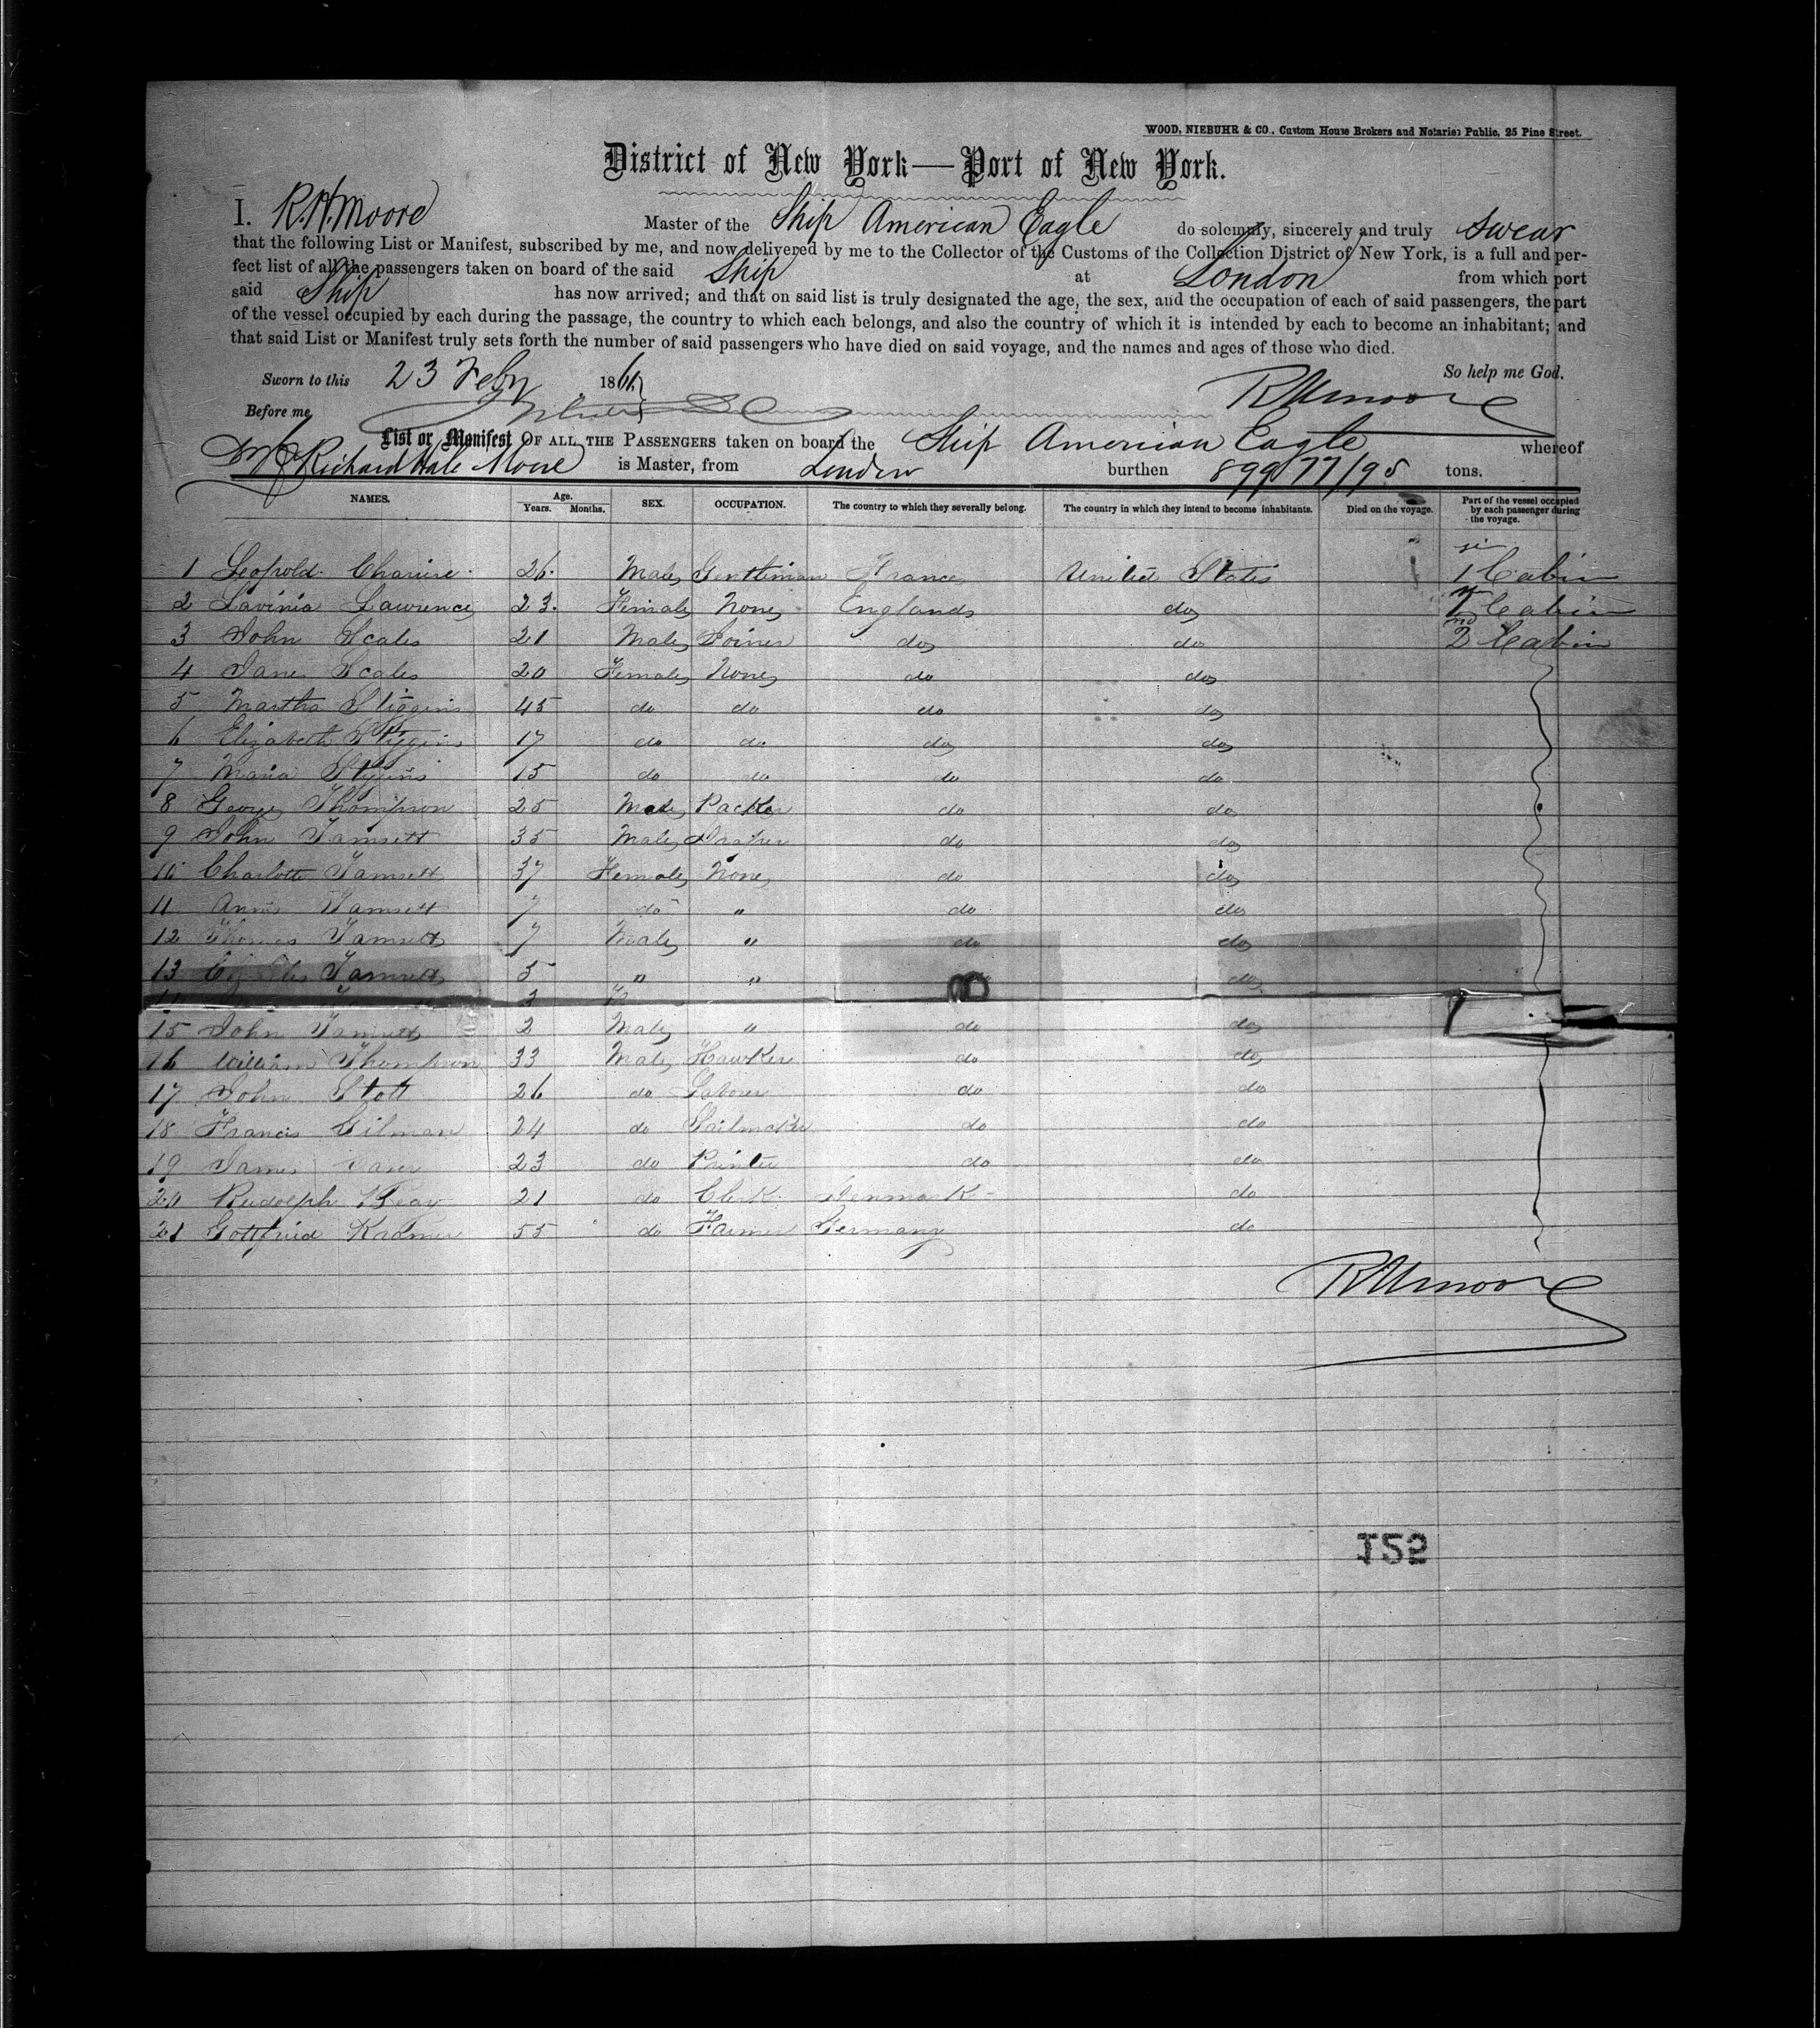 WOOD, NIEBUHR & CO., Custom House Brokers and Notaries Public, 25 Pine Street.
District of New York—Port of New York.
I. R. H. Moore Master of the Ship American Eagle do solemnly, sincerely and truly swear
that the following List or Manifest, subscribed by me, and now delivered by me to the Collector of the Customs of the Collection District of New York, is a full and per-
fect list of all the passengers taken on board of the said Ship at London from which port
said Ship has now arrived; and that on said list is truly designated the age, the sex, and the occupation of each of said passengers, the part
of the vessel occupied by each during the passage, the country to which each belongs, and also the country of which it is intended by each to become an inhabitant; and
that said List or Manifest truly sets forth the number of said passengers who have died on said voyage, and the names and ages of those who died.
So help me God.
Sworn to this 23 Feby 186
Before me, R H Moore
List or Manifest OF ALL THE PASSENGERS taken on board the Ship American Eagle whereof
Richard Hale Moore is Master, from London burthen 899 77/95 tons.
NAMES. Age. Years. Months. SEX. OCCUPATION. The country to which they severally belong. The country in which they intend to become inhabitants. Died on the voyage. Part of the vessel occupied by each passenger during the voyage.
1 Leopold 26 Male Gentleman France United States 1 Cabin
2 Lavinia Lawrence 23 Female None England do Cabin
3 John Scales 21 Male Joiner do do 2nd Cabin
4 Jane Scales 20 Female None do do
5 Martha Stiggins 45 do do do do
6 Elizabeth Stiggins 17 do do do do
7 Maria Stiggins 15 do do do do
8 George Thompson 25 Male Packer do do
9 John Tamsett 35 Male Draper do do
10 Charlotte Tamsett 37 Female None do do
11 Annie Tamsett 7 do " do do
12 Thomas Tamsett 7 Male " do do
13 Charles Tamsett 5 " " do do
14 3
15 John Tamsett 2 Male " do do
16 William Thompson 33 Male Hawker do do
17 John Stott 26 do Laborer do do
18 Francis Gilman 24 do Sailmaker do do
19 James 23 do Printer do do
20 Rudolph 21 do Clerk Denmark do
21 Gottfried Kramer 55 do Farmer Germany do
R H Moore
125